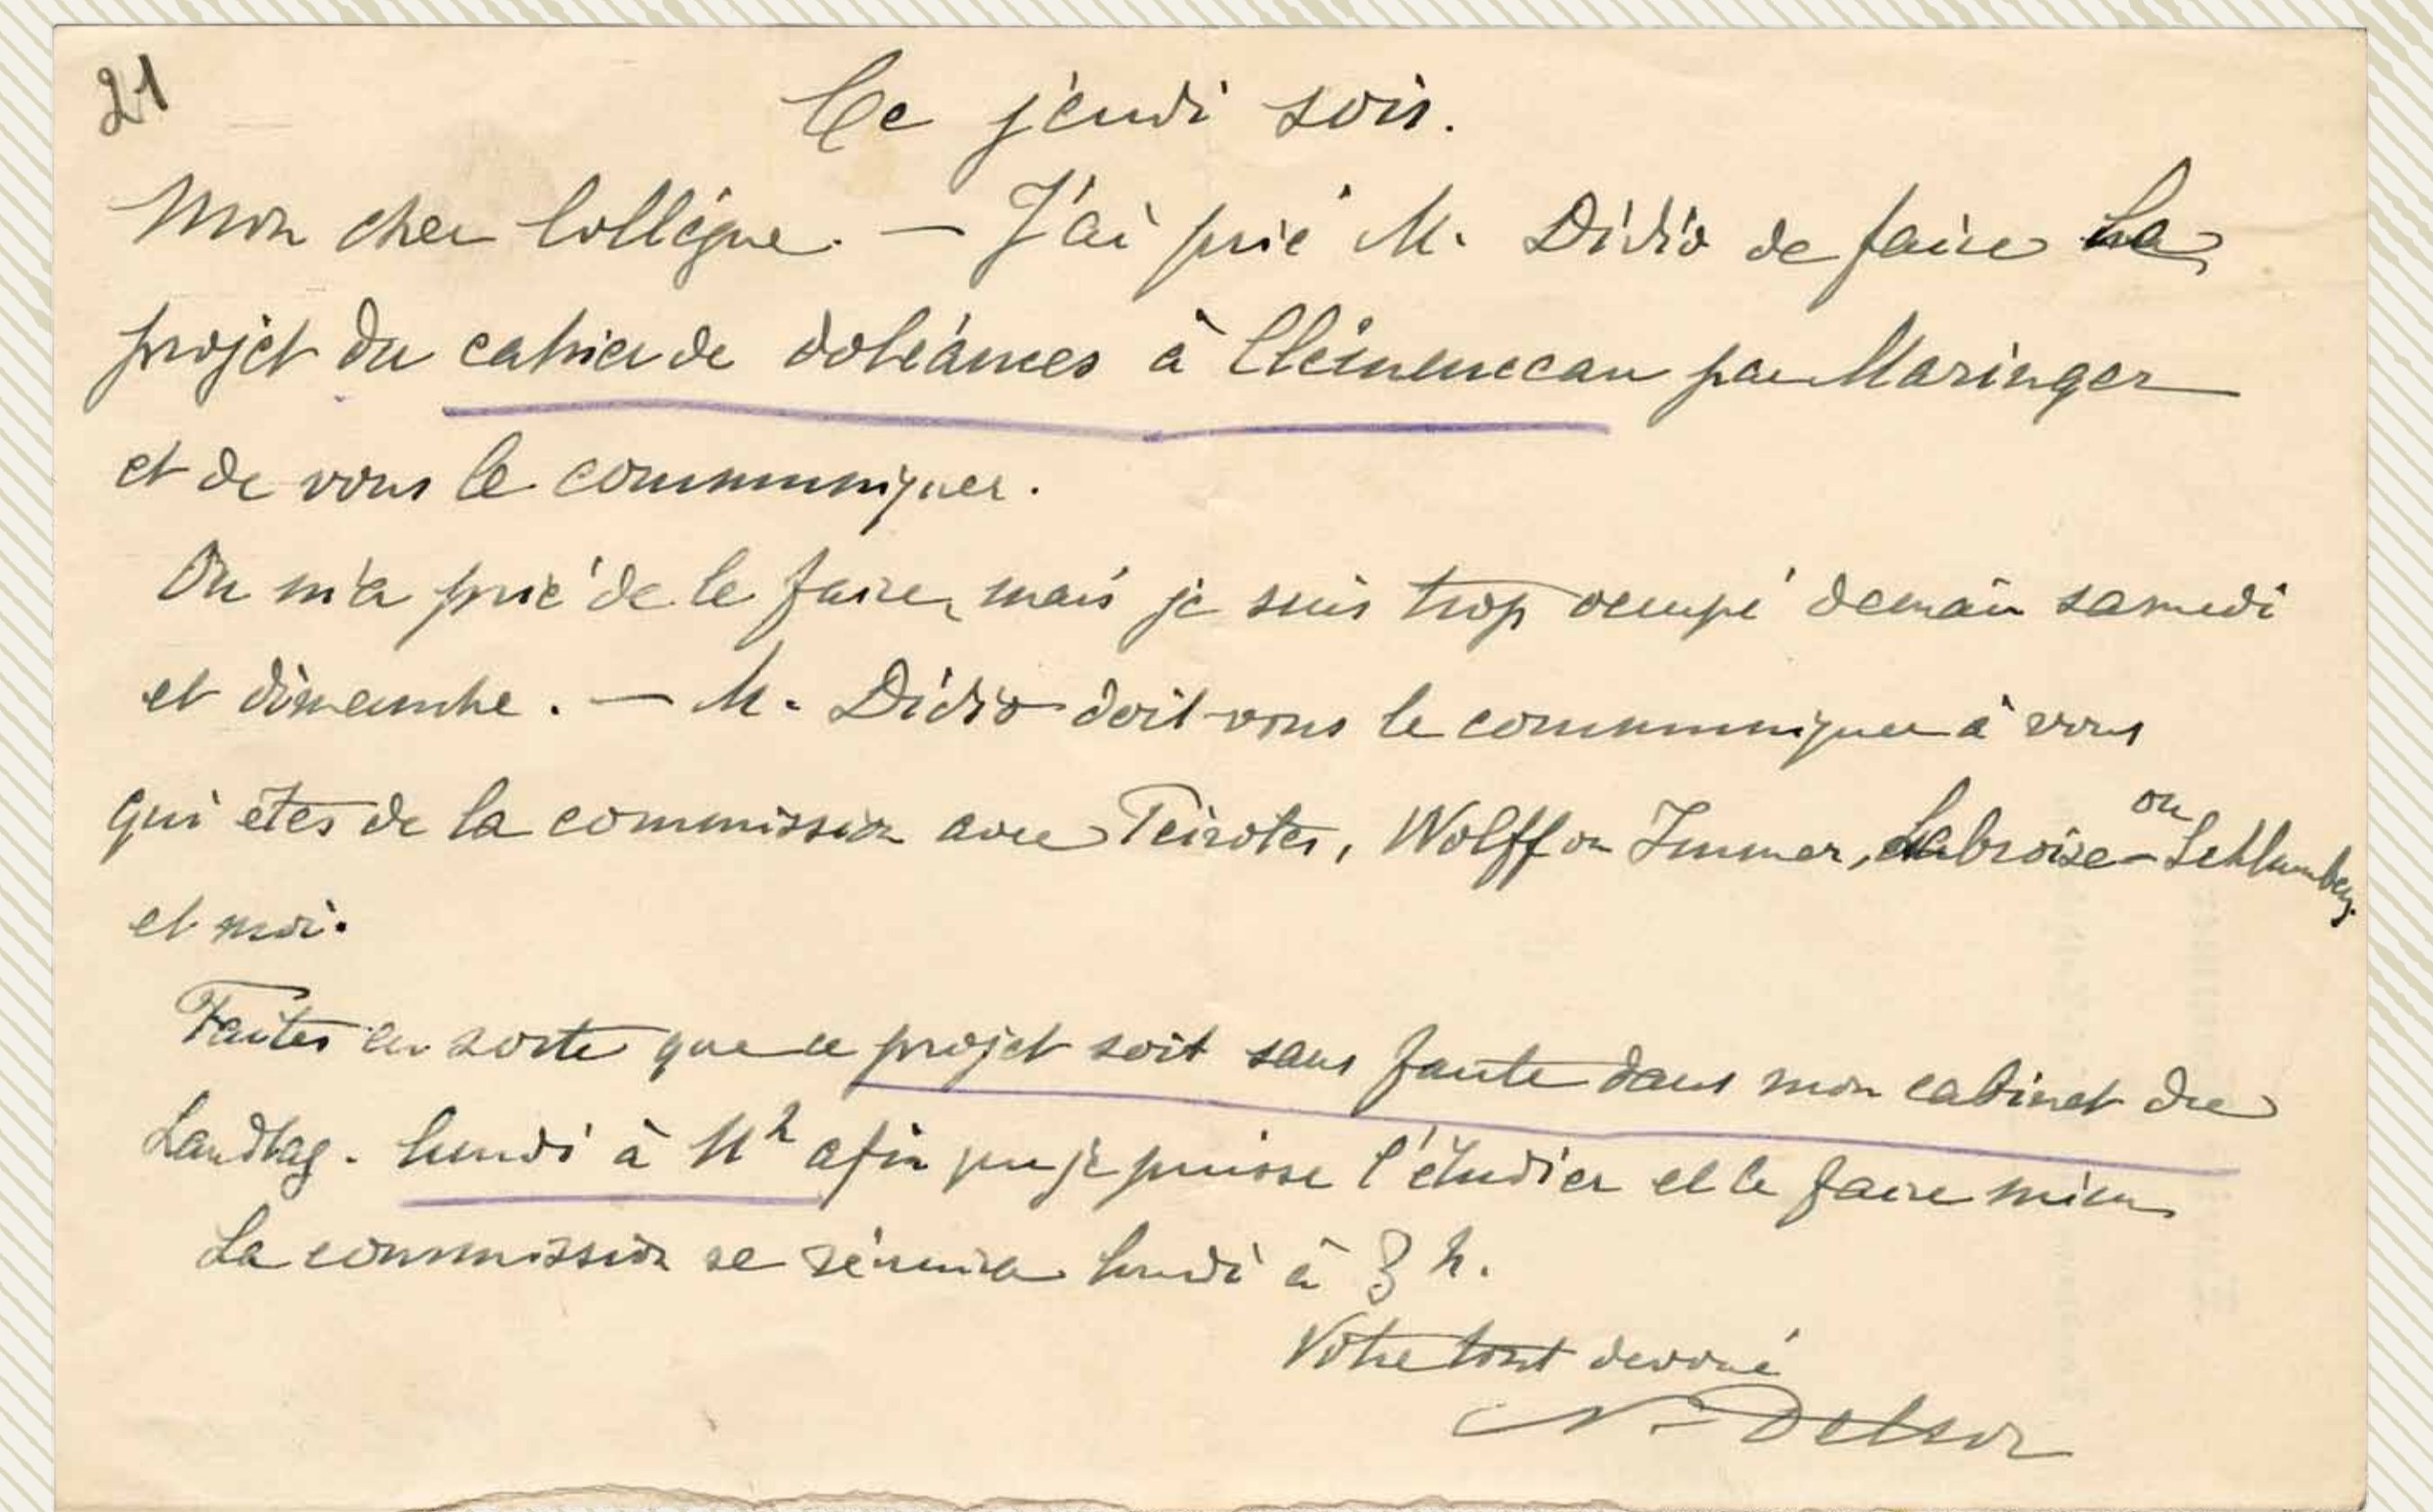 21
Ce jeudi soir.
Mon cher Collègue. — J'ai prié M. Didio de faire le
projet du cahier de doléances à Clémenceau par Maringer
et de vous le communiquer.
On m'a prié de le faire, mais je suis trop occupé demain samedi
et dimanche. — M. Didio doit vous le communiquer à vous
qui êtes de la commission avec Peirotes, Wolff ou Immer, Labroise ou Schlumberg.
et moi.
Faites en sorte que ce projet soit sans faute dans mon cabinet du
Landtag. lundi à 11h afin que je puisse l'étudier et le faire mien
La commission se réunira lundi à 3 h.
Votre tout dévoué
N. Delsor